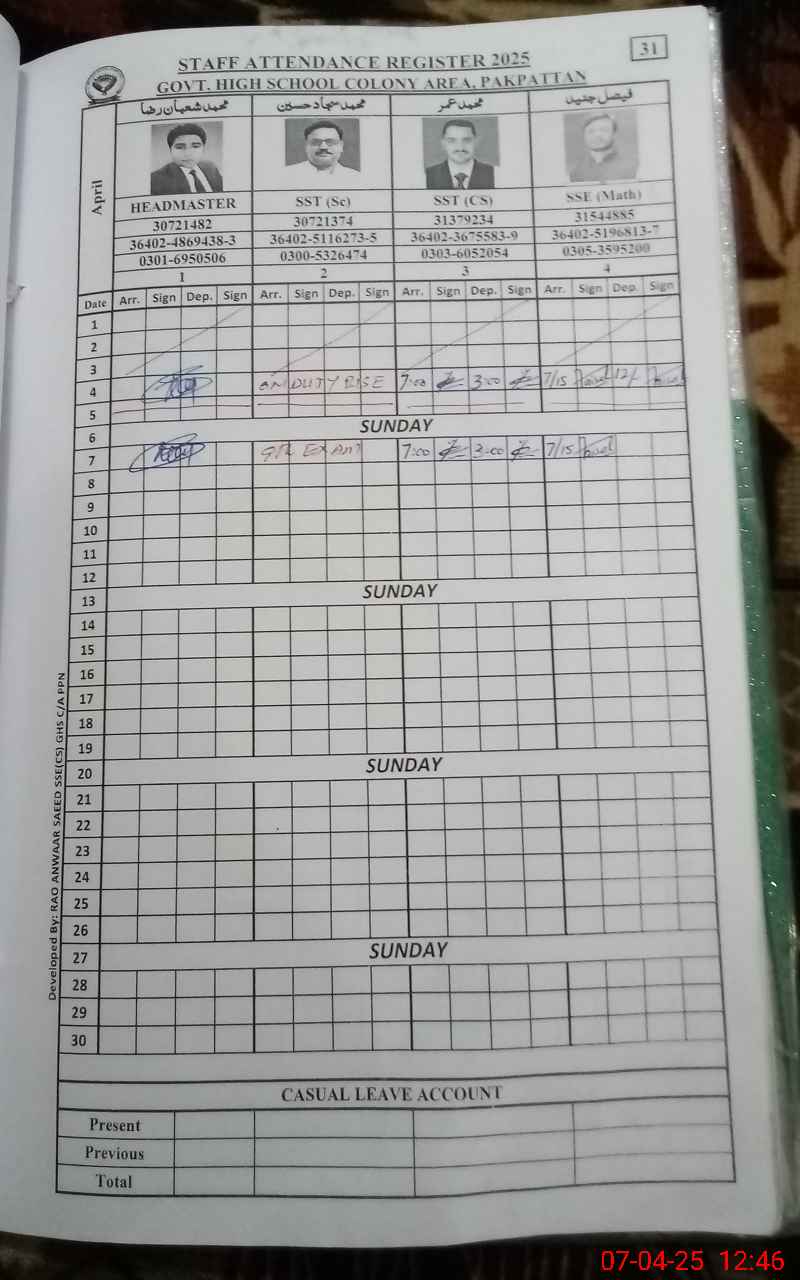 31
STAFF ATTENDANCE REGISTER 2025
GOVT. HIGH SCHOOL COLONY AREA, PAKPATTAN
April
محمد شعبان رضا محمد سجاد حسین محمد عمر فیصل جنید
HEADMASTER SST (Sc) SST (CS) SSE (Math)
30721482 30721374 31379234 31544885
36402-4869438-3 36402-5116273-5 36402-3675583-9 36402-5196813-7
0301-6950506 0300-5326474 0303-6052054 0305-3595200
1 2 3 4
Date Arr. Sign Dep. Sign Arr. Sign Dep. Sign Arr. Sign Dep. Sign Arr. Sign Dep. Sign
1
2
3
4 ON DUTY BISE 7:00 3:00 7/15 12/-
5
6 SUNDAY
7 EXAM 7:00 3:00 7/15
8
9
10
11
12
13 SUNDAY
14
15
16
17
18
19
20 SUNDAY
21
22
23
24
25
26
27 SUNDAY
28
29
30
CASUAL LEAVE ACCOUNT
Present
Previous
Total
Developed By: RAO ANWAAR SAEED SSE(CS) GHS C/A PPN
07-04-25 12:46